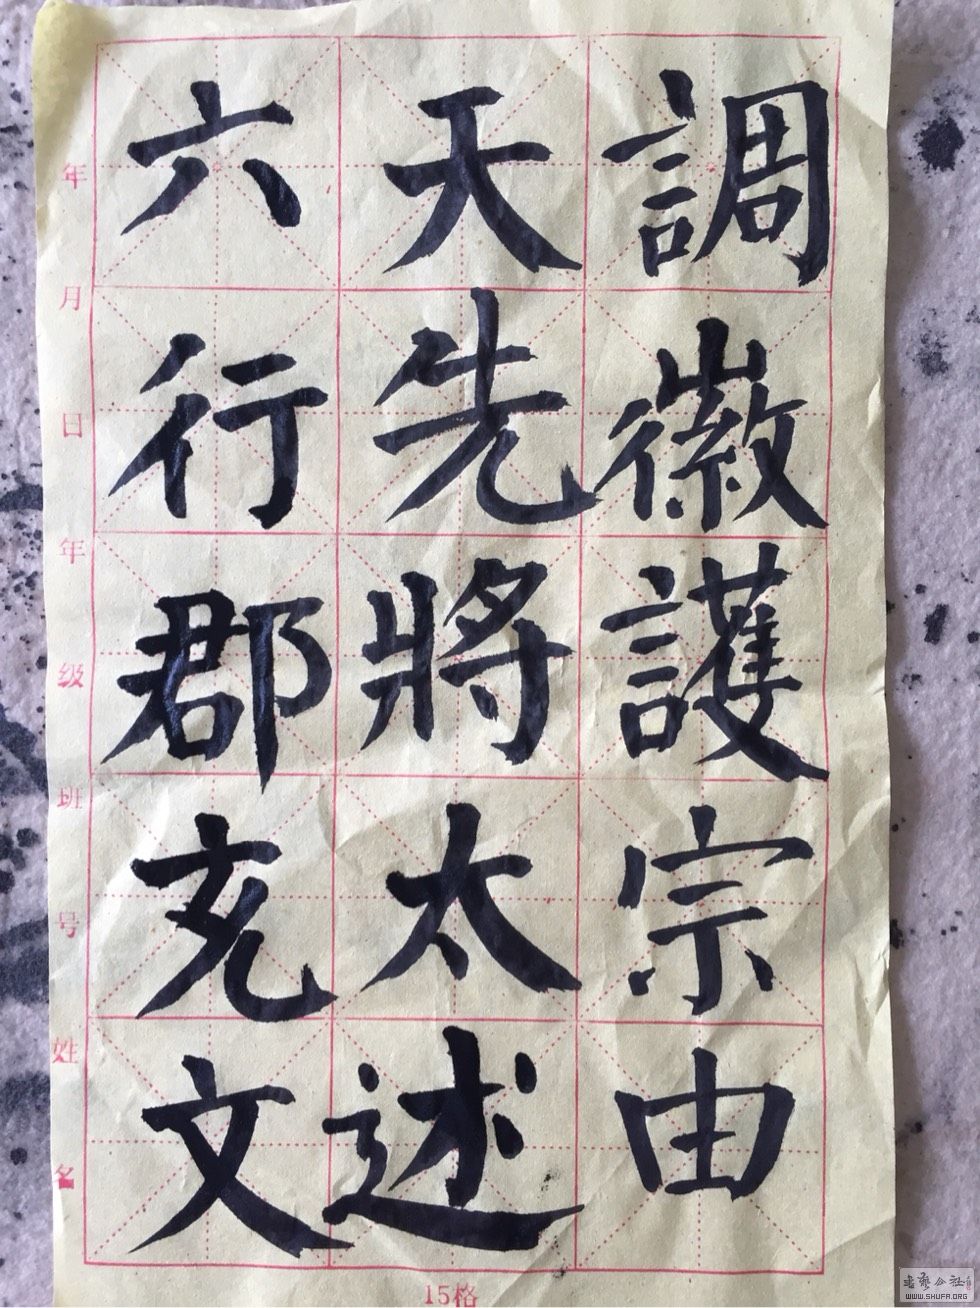 調徽護宗由
天先將太述
六行郡充文
年月日年级班号姓名
15格
书艺公社
WWW.SHUFA.ORG